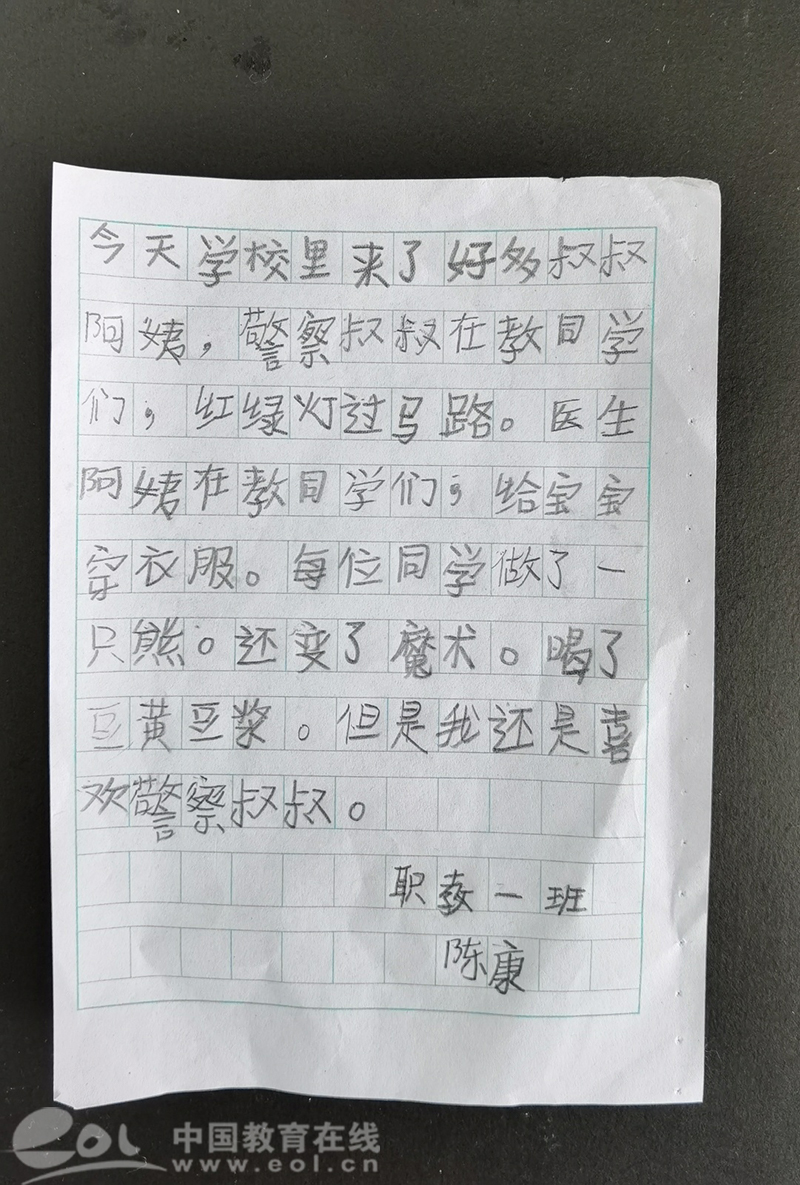 今天学校里来了好多叔叔
阿姨，警察叔叔在教同学
们，红绿灯过马路。医生
阿姨在教同学们，给宝宝
穿衣服。每位同学做了一
只熊。还变了魔术。喝了
豆黄豆浆。但是我还是喜
欢警察叔叔。
职教一班
陈康
eol 中国教育在线
www.eol.cn